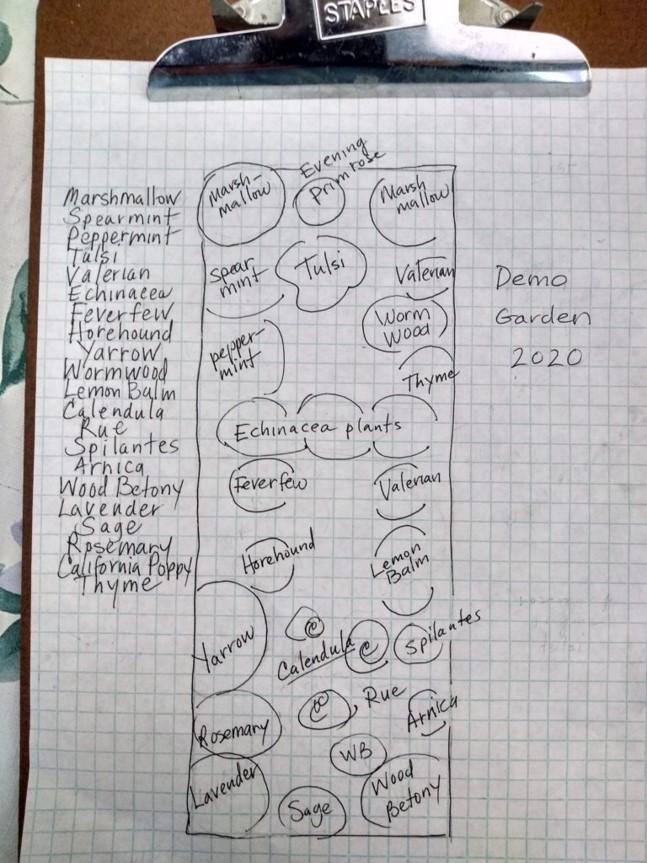 STAPLES
Marshmallow
Spearmint
Peppermint
Tulsi
Valerian
Echinacea
Feverfew
Horehound
Yarrow
Wormwood
Lemon Balm
Calendula
Rue
Spilantes
Arnica
Wood Betony
Lavender
Sage
Rosemary
California Poppy
Thyme
Marsh-
mallow
Evening
Primrose
Marsh
mallow
Spear
mint
Tulsi
Valerian
Worm
Wood
pepper-
mint
Thyme
Echinacea plants
Feverfew
Valerian
Horehound
Lemon
Balm
Yarrow
C
Calendula
C
Spilantes
Rosemary
Rue
Arnica
WB
Lavender
Sage
Wood
Betony
Demo
Garden
2020